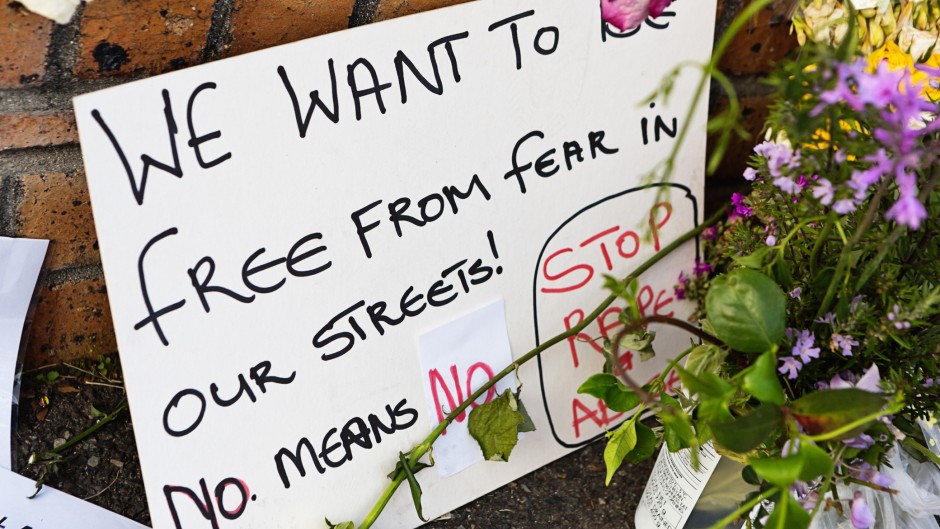 WE WANT TO BE
FREE FROM FEAR IN
OUR STREETS!
NO. MEANS NO
STOP
RAPE